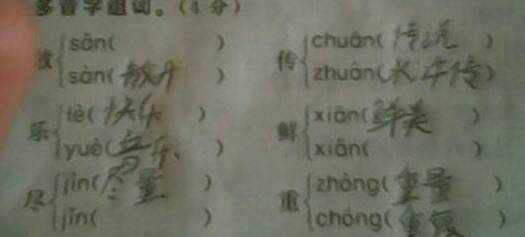 多音字组词。(4 分)
sǎn( ) chuán(传说)
散 传
sàn(散开) zhuàn(水浒传)
lè(快乐) xiān(鲜美)
乐 鲜
yuè(音乐) xiǎn( )
jǐn(尽量) zhòng(重量)
尽 重
jìn( ) chóng(重复)